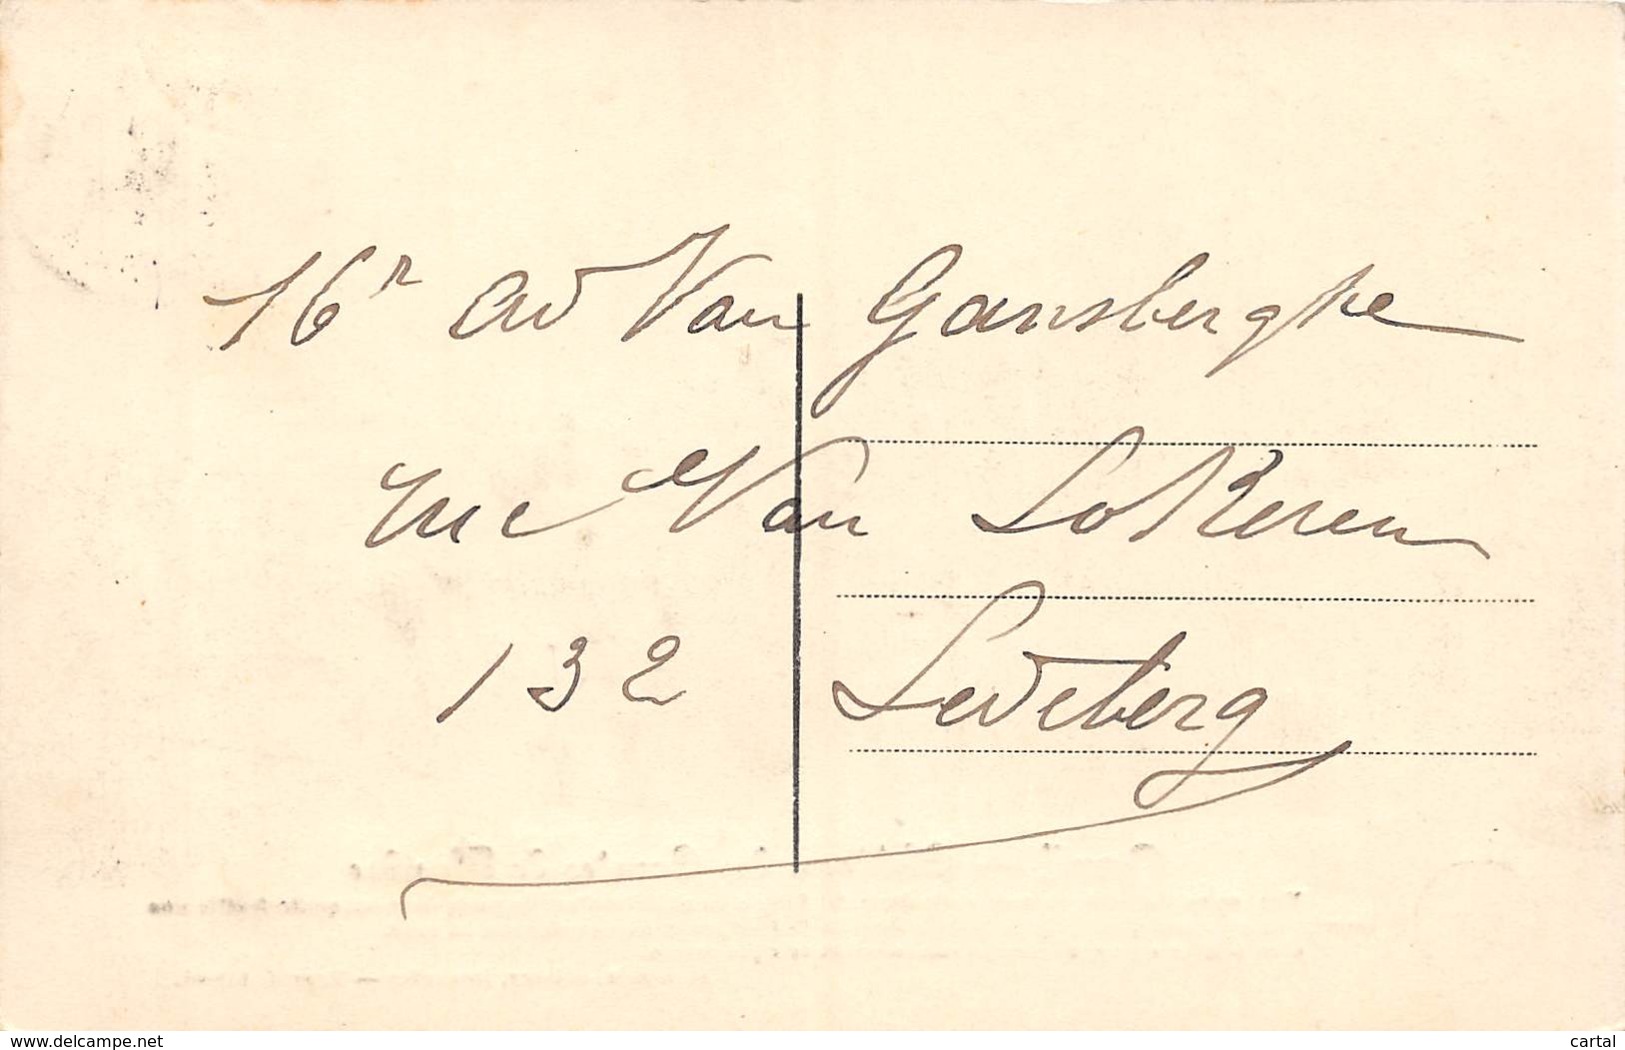 16r Ad Van Gansberghe
rue Van LoKeren
132 Ledeberg
www.delcampe.net
cartal